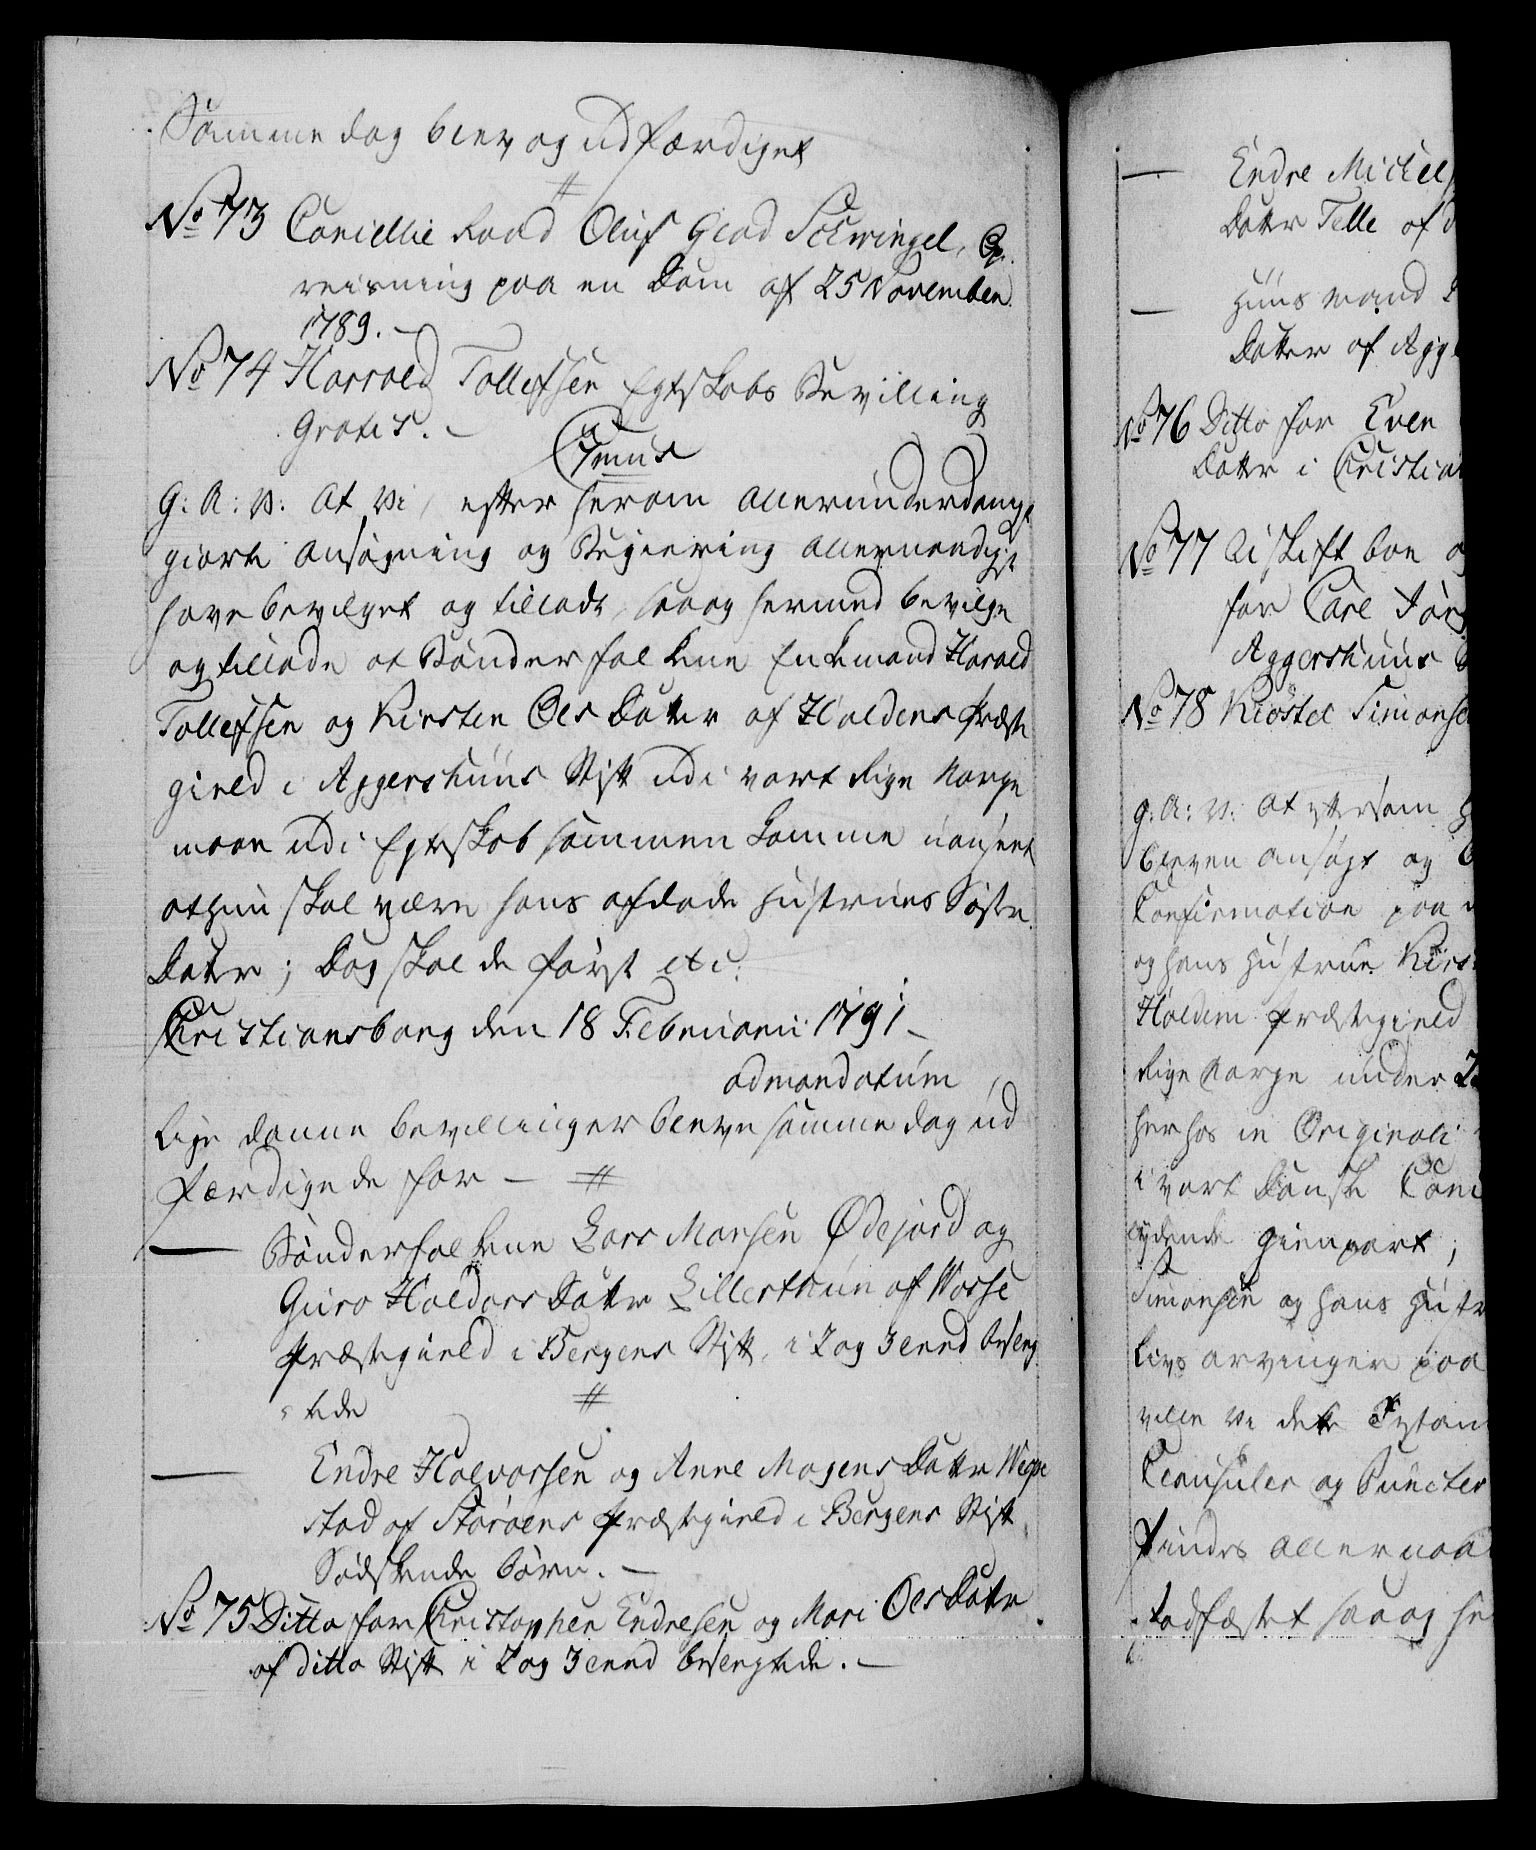 Samme dag blev og udfærdiget
No 73 Cancellie Raad Oluf Glad Schwingel, Op
reisning paa en Dom af 25 November
1789. –
No 74 Harrald Tollefsen Egteskabs Bevilling
Gratis. –
C 7mus
G: A: V: At Vi, efter herom allerunderdanigst
giorte Ansøgning og Begiering allernaadigst
have bevilget og tilladt, saa og hermed bevilge
og tillade at Bønderfolkene Enkemand Harald
Tollefsen og Kirsten Ols Datter af Holdens Præste
gield i Aggershuus Stift udi vort Rige Norge
maae udi Egteskab sammen komme uanseet
at hun skal være hans afdøde Hustrues Søster
Datter; Dog skal de først etc:
Christiansborg den 18 Februarii 1791 –
ad mandatum
Lige danne bevillinger bleve samme dag ud
færdigede for – #
— Bønderfolkene Lars Monsen Ødejord og
Guro Haldors Datter Lillethun af Vosse
Præstegield i Bergens Stift, i 2 og 3 leed besveg
tede #
— Endre Halvorsen og Anne Mogens Datter
stad af Storøens Præstegield i Bergens Stift
Sødskende børn. –
No 75 Ditto for Christopher Endresen og Mari Ols Datter
af ditto Stift i 2 og 3 leed besvegtede. –
— Endre Mickel
Datter Telle af
— Huusmand
Datter af Agg
No 76 Ditto for Even
Datter i Christia
No 77 Uskift boe
for Carl Jørg
Aggershuus
No 78 Kiøstel Simonse
G: A: V: At eftersom
bleven ansøgt og
Confirmation paa
og hans Hustrue Kirs
Holden Præstegield
Rige Norge under
herhos in Originali
i vort Danske Canc
lydende Gienpart;
Simonsen og hans Hustr
Livs arvinger paa
ville Vi dette Testam
Clausuler og Puncter
findes allernaa
stadfæstet saa og he